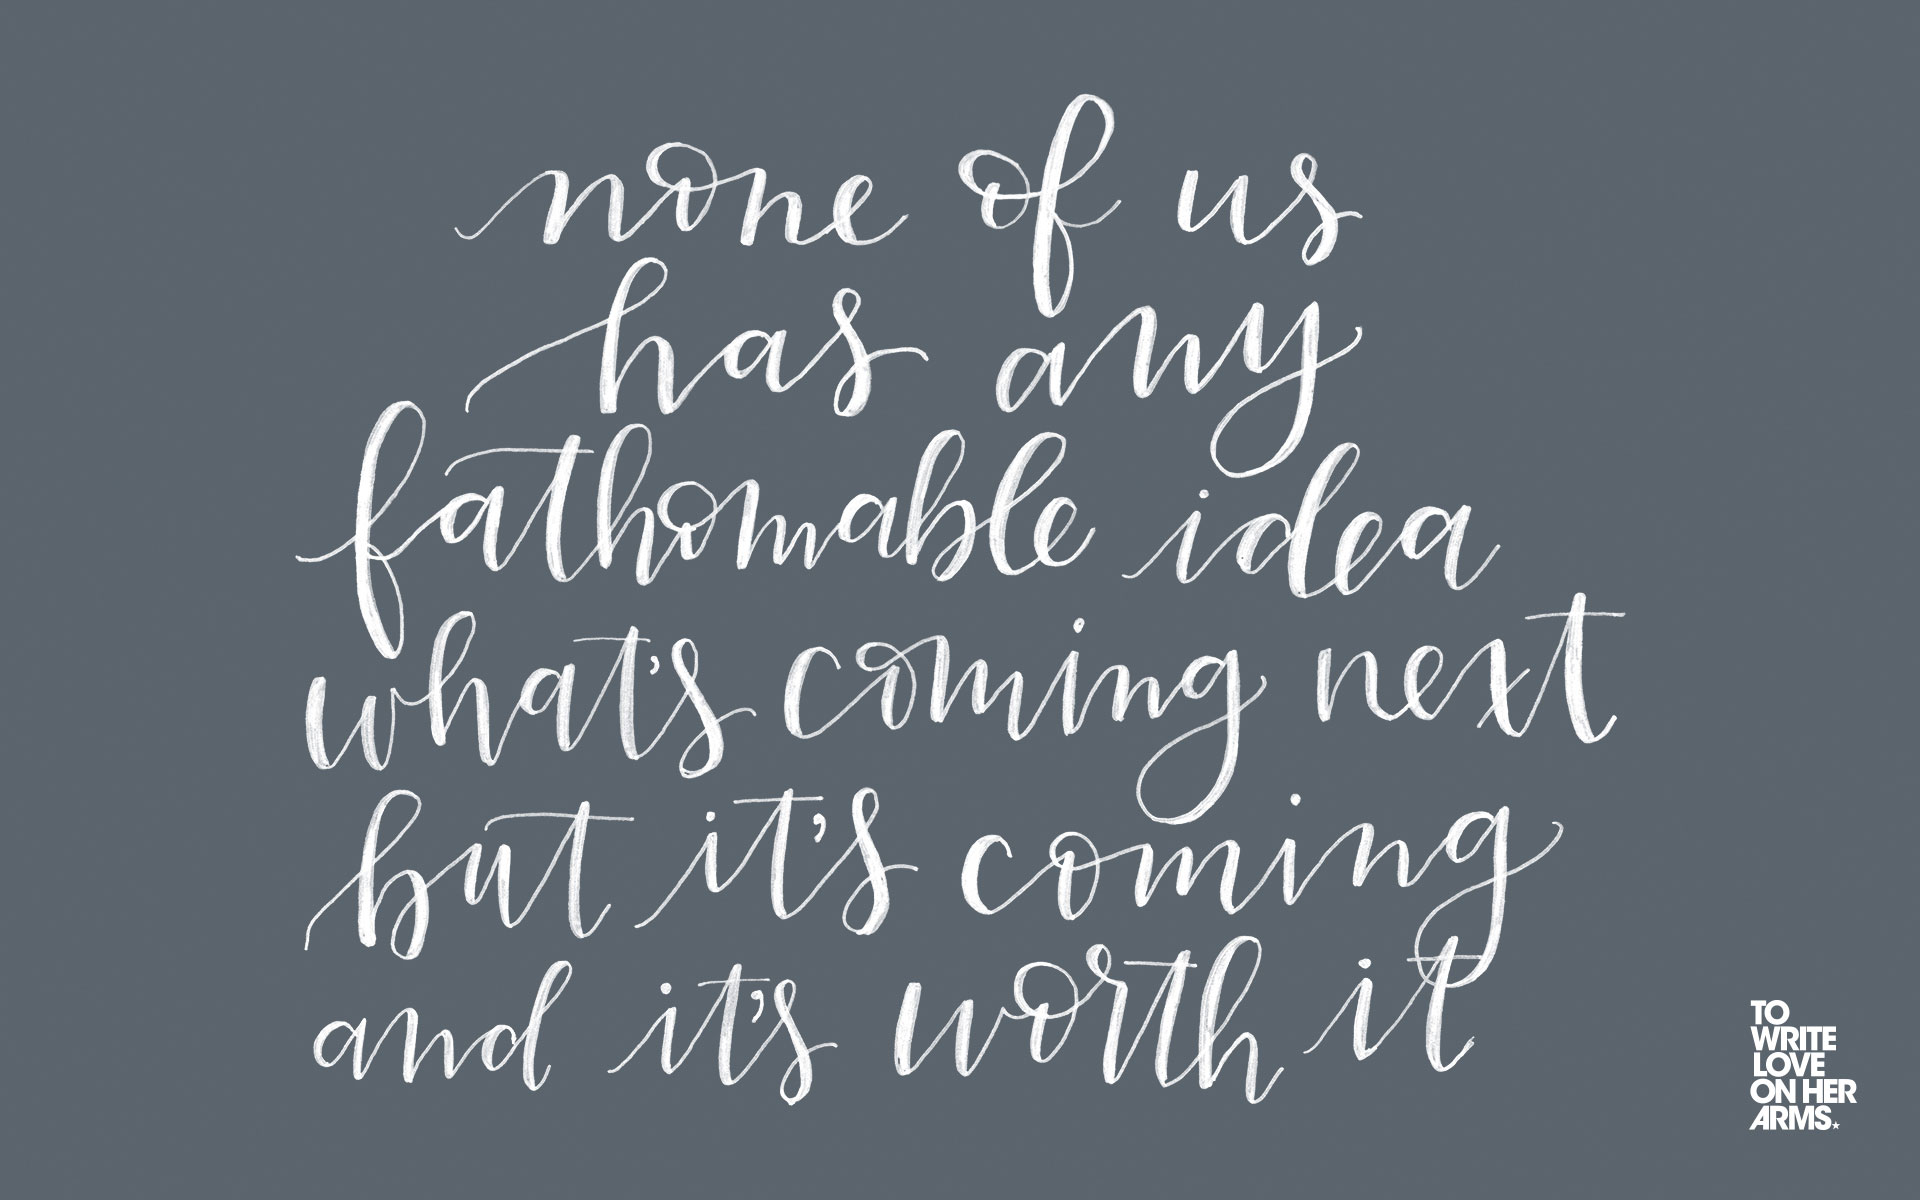 none of us
has any
fathomable idea
what's coming next
but it's coming
and it's worth it
TO
WRITE
LOVE
ON HER
ARMS.